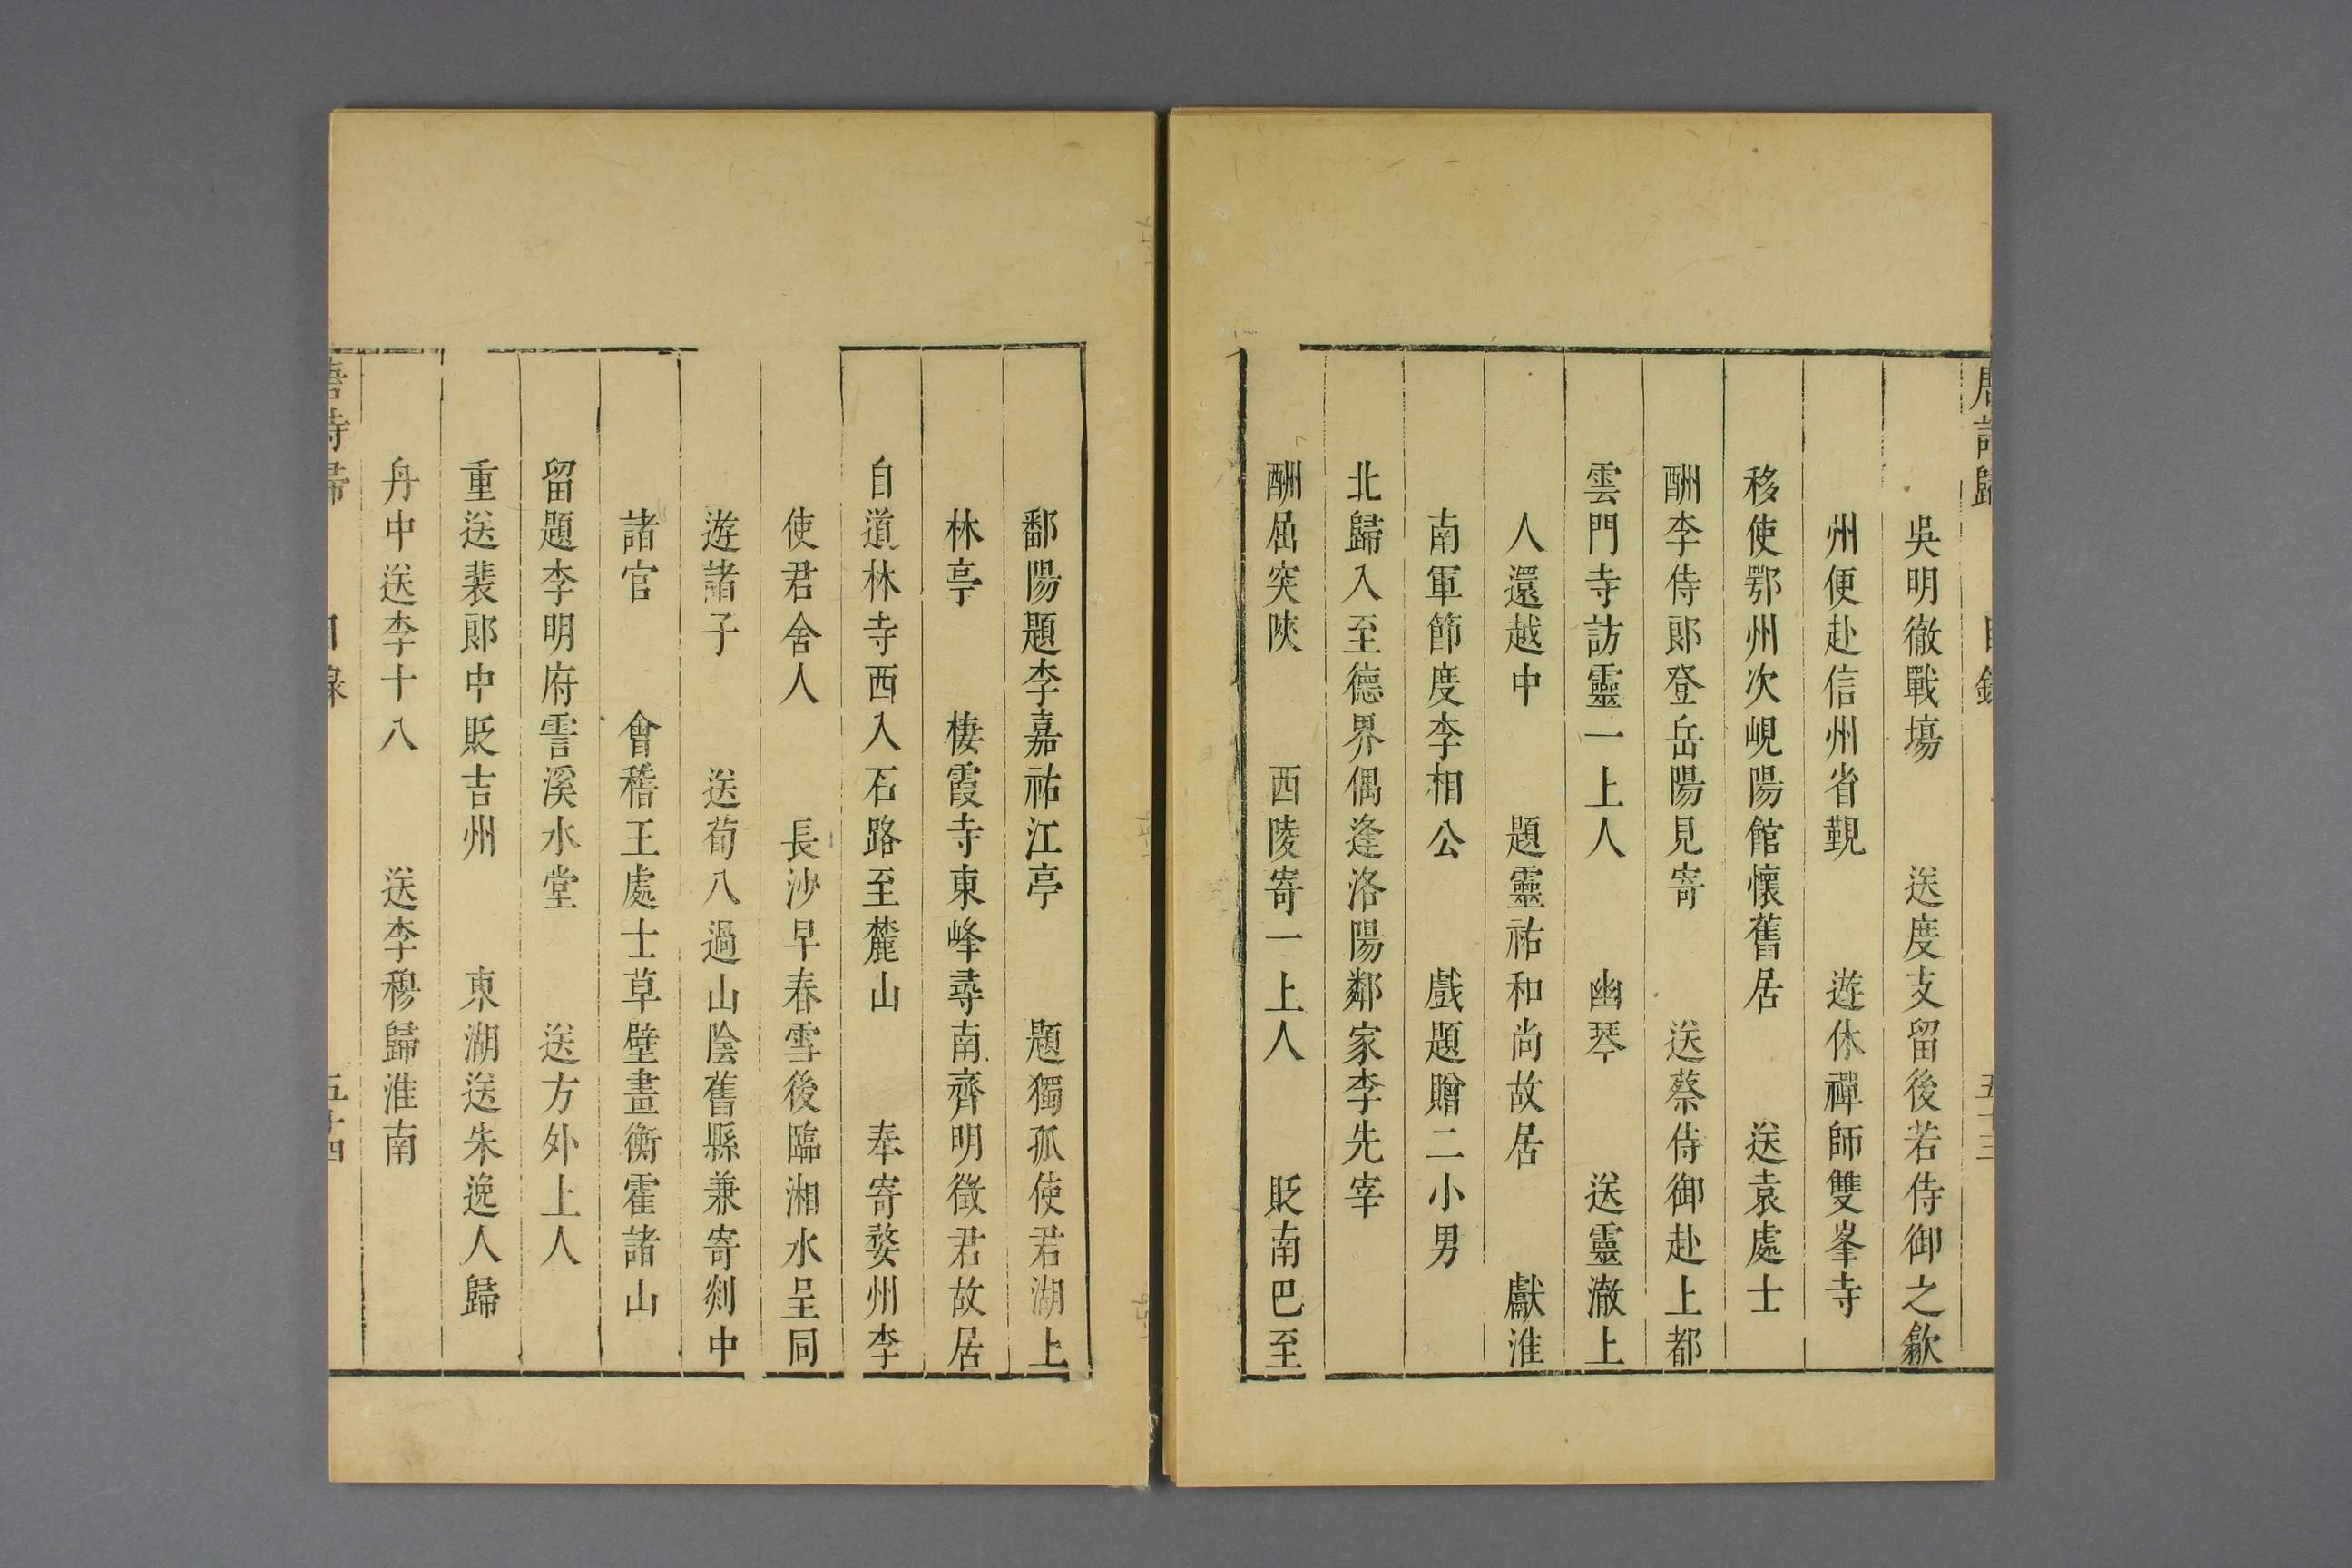 唐詩歸　目錄　五十三
吳明徹戰塲　送度支留後若侍御之歙
州便赴信州省覲　遊休禪師雙峯寺
移使鄂州次峴陽館懷舊居　送袁處士
酬李侍郎登岳陽見寄　送蔡侍御赴上都
雲門寺訪靈一上人　幽琴　送靈澈上
人還越中　題靈祐和尚故居　獻淮
南軍節度李相公　戲題贈二小男
北歸入至德界偶逢洛陽鄰家李先宰
酬屈突陝　西陵寄一上人　貶南巴至
鄱陽題李嘉祐江亭　題獨孤使君湖上
林亭　棲霞寺東峰尋南齊明徵君故居
自道林寺西入石路至麓山　奉寄婺州李
使君舍人　長沙早春雪後臨湘水呈同
遊諸子　送荀八過山陰舊縣兼寄剡中
諸官　會稽王處士草壁畫衡霍諸山
留題李明府霅溪水堂　送方外上人
重送裴郎中貶吉州　東湖送朱逸人歸
舟中送李十八　送李穆歸淮南
唐詩歸　目錄　五十四